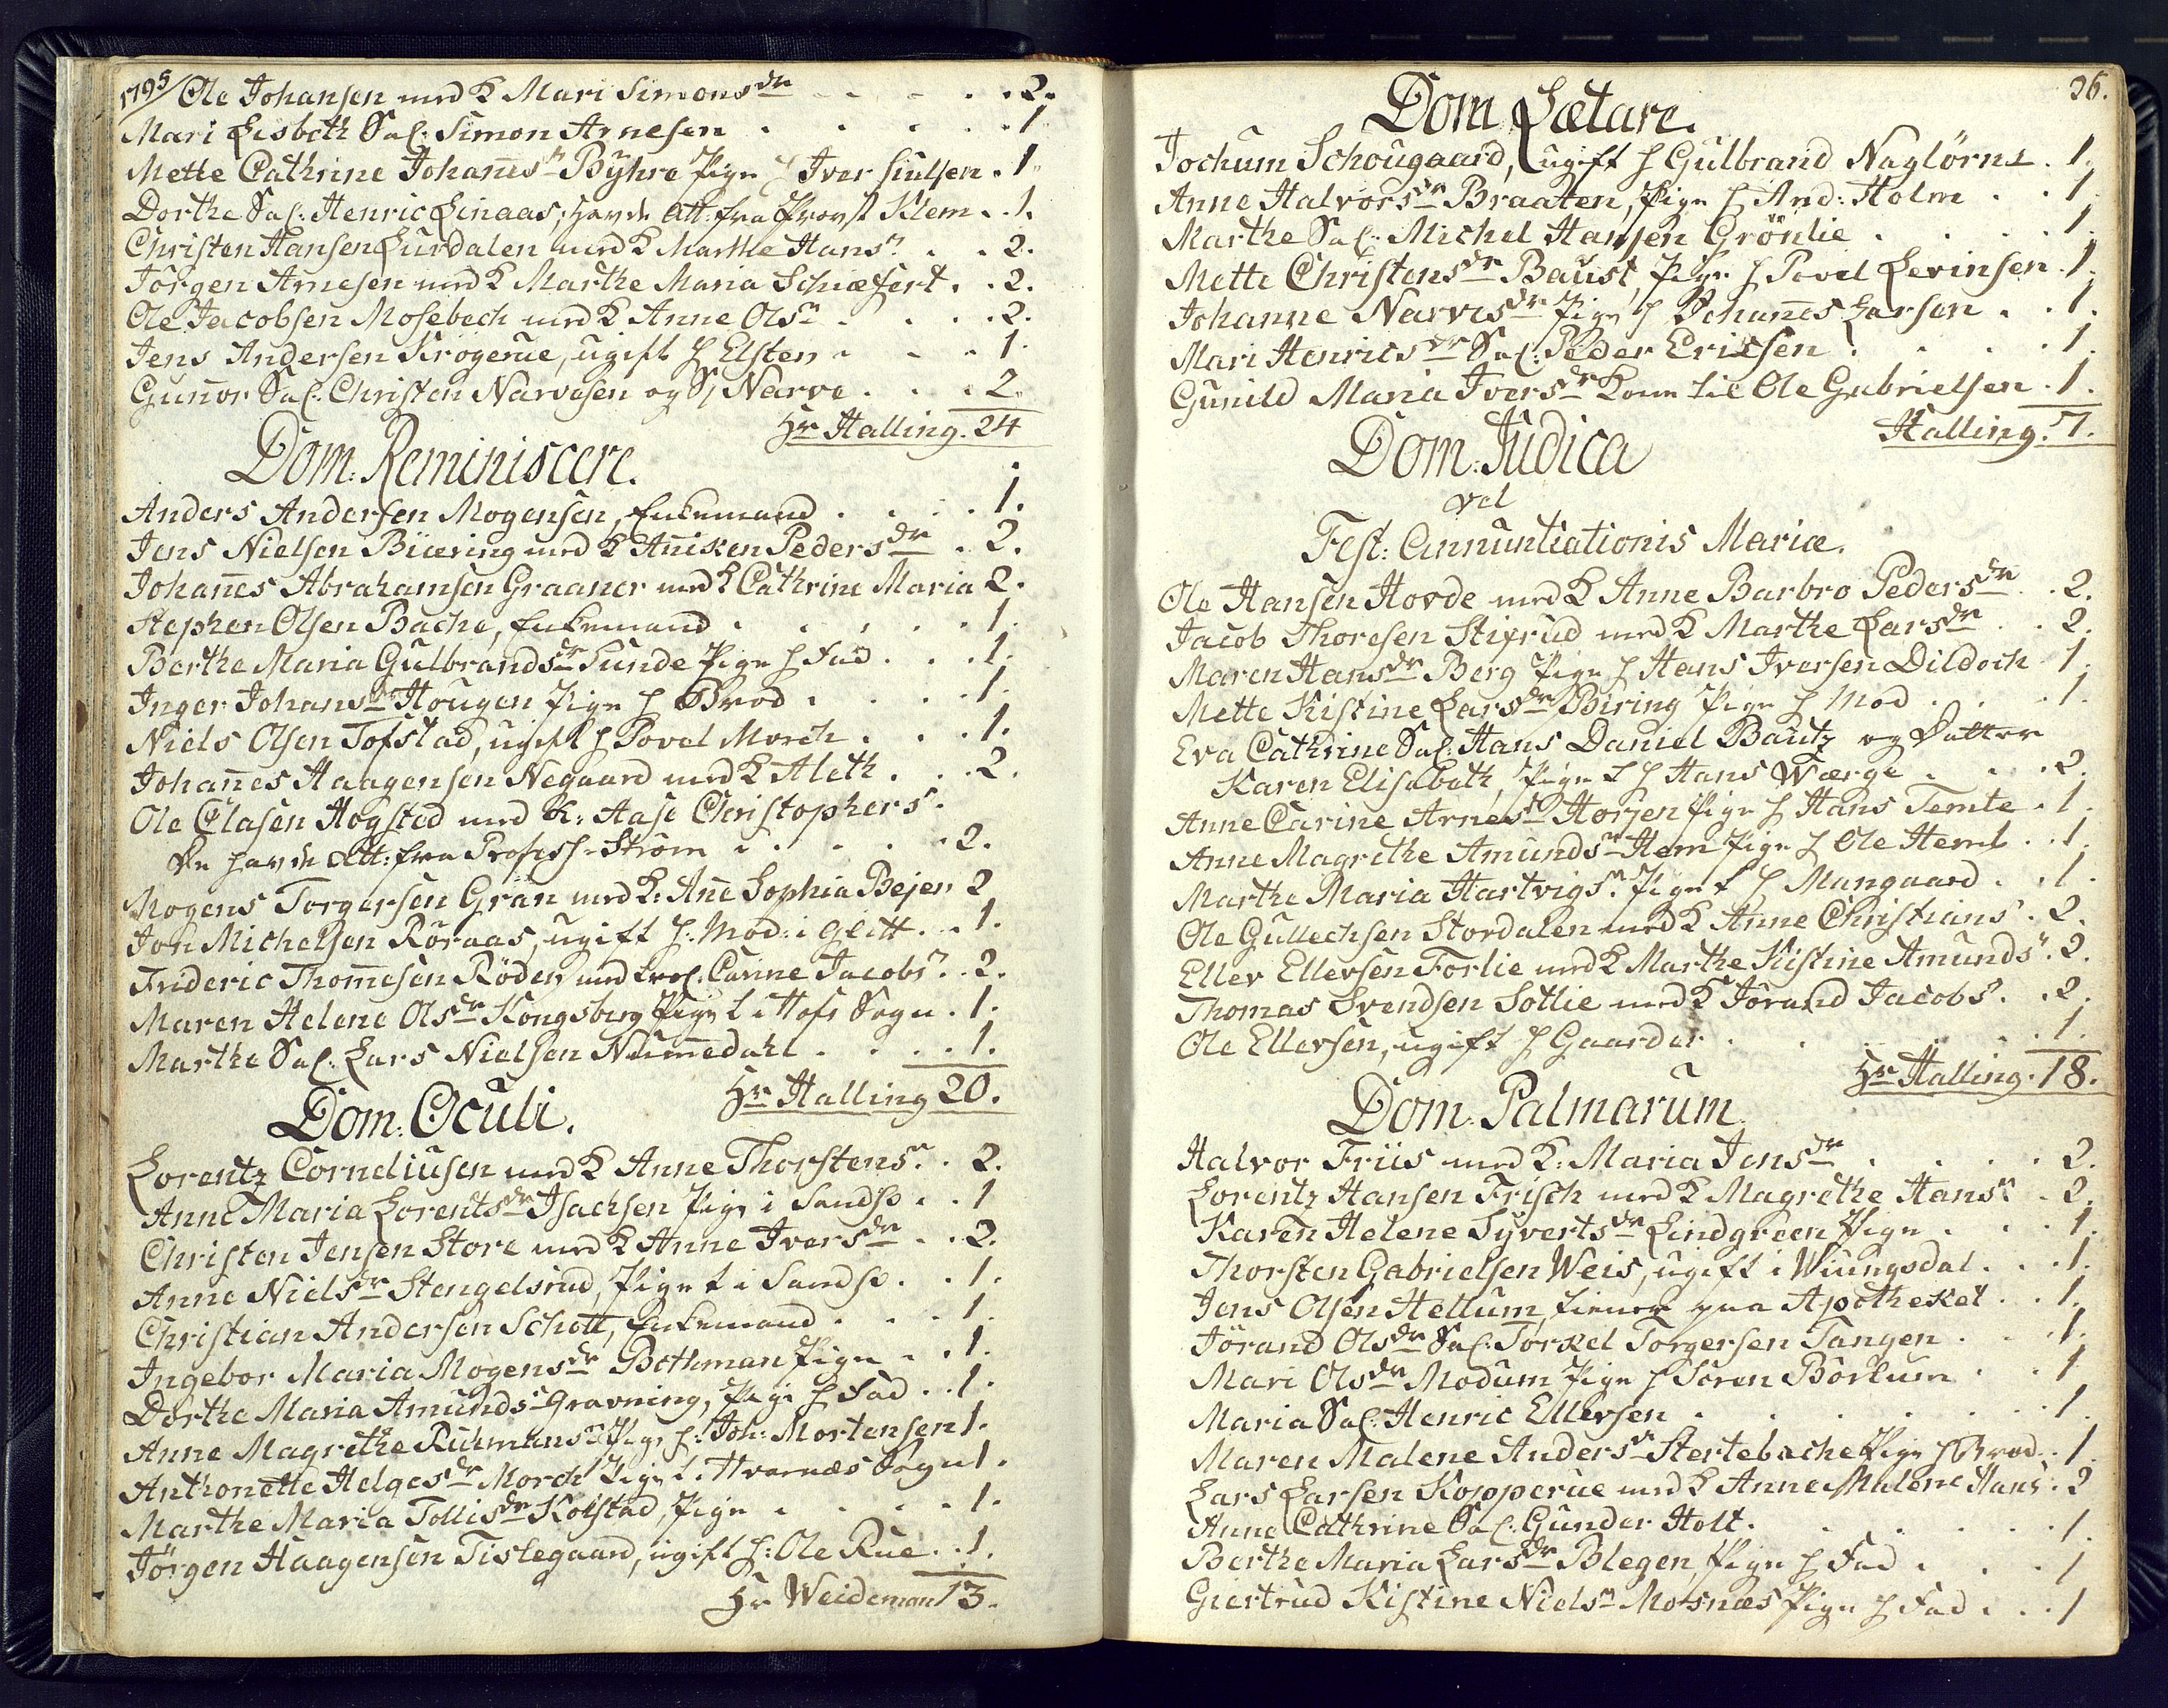 1795/ Ole Johansen med K Mari Simonsdr 2.
Mari Lisbeth Sal: Simon Arnesen 1
Mette Cathrine Johanes Bÿhre Pige Iver 1
Dorthe Sal: Henric Linaas, havde Att: fra Provst Klem 1.
Christen Hansen Lurdalen med K Marthe Hans 2.
Jörgen Arnesen med K Marthe Maria Schiæfert 2.
Ole Jacobsen Mosebech med K Anne Ols 2.
Jens Andersen Krogerue, ugift h Elsten 1.
Gunnor Sal: Christen Narvesen og Narve 2.
Hr Halling. 24
Dom: Reminiscere.
Anders Andersen Mogensen, Enkemand 1.
Jens Nielsen Biering med K Aniken Pedersdr 2.
Johanes Abrahamsen Graaner med K Cathrine Maria 2.
Stephen Olsen Bache, Enkemand 1.
Berthe Maria Gulbrandsdr Sunde Pige h Fad 1.
Inger Johansdr Hougen Pige h Brod 1.
Niels Olsen Tofstad, ugift h Povel Morch 1.
Johanes Haagensen Negaard med K Aleth 2.
Ole Clasen Hogsted med K: Aase Christophers
De havde Att: fra Profess. Ström 2.
Mogens Torgersen Gran med K: Ane Sophia Bejer 2
Joh Michelsen Röraas, ugift h: Mod: i Glitt 1.
Frideric Thomesen Röder med Carine Jacobs 2.
Maren Helene Olsdr Kongsberg Pige t i Hofs Sogn 1.
Marthe Sal: Lars Nielsen Numedahl 1.
Hr Halling 20.
Dom: Oculi.
Lorentz Corneliusen med K Anne Thorstens 2.
Anne Maria Lorentsdr Isachsen Pige i Sandsv 1
Christen Jensen Store med K Anne Iversdr 2.
Anne Nielsdr Stengelsrud, Pige t i Sandsv 1.
Christian Andersen Schott, Enkemand 1.
Ingebor Maria Mogensdr Bothman Pige 1.
Dorthe Maria Amunds Gravning, Pige h Fad 1.
Anne Magrethe Pige h: Joh: Mortensen 1.
Anthonette Helgesdr Morch Pige t i Hvarnæs Sogn 1.
Marthe Maria Tollisdr Kolstad, Pige 1.
Jörgen Haagensen Tislegaard, ugift h: Ole Rue 1.
Hr Weideman 13.
36.
Dom Lætare.
Jochum Schougaard, ugift h Gulbrand Naglörne 1.
Anne Halvorsdr Braaten, Pige h And: Holm 1.
Marthe Sal: Michel Hansen Grönlie 1.
Mette Christensdr Baust, Pige h Povel Levinsen 1.
Johanne Narvesdr Pige h Johanes Larsen 1.
Mari Henricsdr Sal: Peder Ericsen 1.
Gunild Maria Iversdr Kone til Ole Gabrielsen 1.
Halling. 7.
Dom: Judica
vel
Fest: Annuntiationis Mariæ.
Ole Hansen Hovde med K Anne Barbro Pedersdr 2.
Jacob Thoresen Stifrud med K Marthe Larsdr 2.
Maren Hansdr Berg Pige h Hans Iversen Dildoch 1.
Mette Kistine Larsdr Biring Pige h Mod 1.
Eva Cathrine Sal: Hans Daniel Bautz og Datter
Karen Elisabeth, Pige t h Hans Værge 2.
Anne Carine Arnesdr Horjen Pige h Hans Temte 1.
Anne Magrethe Amunds Hem Pige h Ole Heml 1.
Marthe Maria Hartvigs Pige t h Mangaard 1.
Ole Gullechsen Stordalen med K Anne Christians 2.
Eller Ellersen Forlie med K Marthe Kistine Amunds 2.
Thomas Svendsen Sollie med K Jörand Jacobs 2.
Ole Ellersen, ugift h Gaarder 1.
Hr Halling. 18.
Dom: Palmarum.
Halvor Friis med K: Maria Jensdr 2.
Lorentz Hansen Frisch med K Magrethe Hans 2.
Karen Helene Syvertsdr Lindgreen Pige 1.
Thorsten Gabrielsen Weis, ugift i Wiungsdal 1.
Jens Olsen Hellum, tiener paa Apotheket 1.
Jörand Olsdr Sal: Torkel Torgersen Tangen 1.
Mari Olsdr Modum Pige h Soren Börtum 1
Maria Sal: Henric Ellersen 1.
Maren Malene Anders Stertebache Pige h Brod 1
Lars Larsen Kopperue med K Anne Malene Hans 2
Anne Cathrine Sal: Gunder Holt 1.
Berthe Maria Larsdr Blegen, Pige h Fad 1
Giertrud Kistine Niels Mosnæs Pige h Fad 1